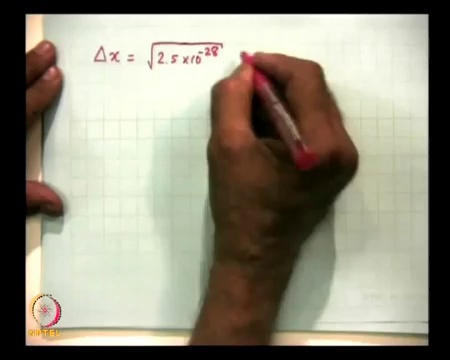 Δx = √2.5 × 10⁻²⁸
NPTEL